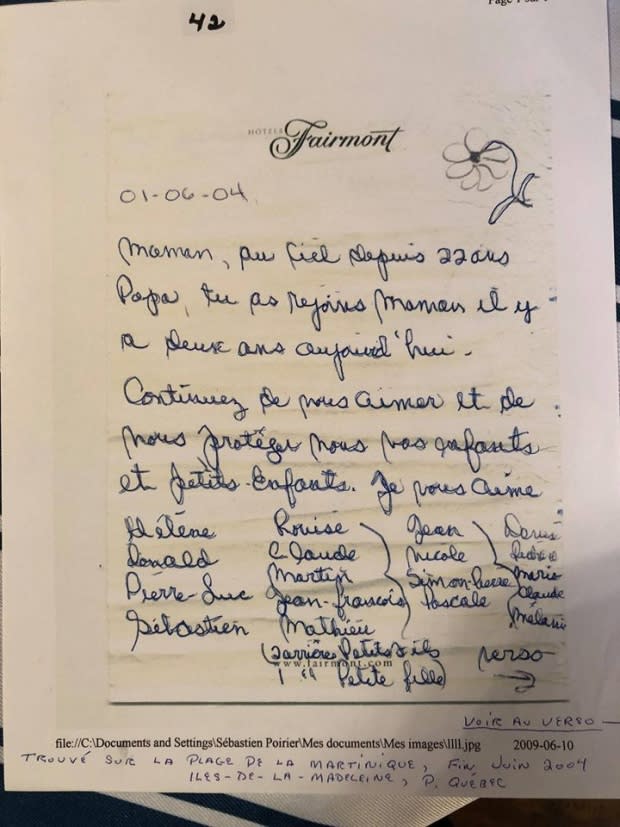 42
HOTELS Fairmont
01-06-04
Maman, au ciel depuis 22 ans
Papa, tu as rejoins maman il y
a deux ans aujourd'hui.
Continuez de nous aimer et de
nous protéger nous vos enfants
et petits-Enfants. Je vous aime
Hélène Louise Jean
Donald Claude Nicole
Pierre-Luc Martin Simon-Pierre Marie
Sébastien Jean-François Pascale Claude
Mathieu Mélanie
(arrière Petits fils verso
www.fairmont.com
1 ère Petite fille)
VOIR AU VERSO
file://C:\Documents and Settings\Sébastien Poirier\Mes documents\Mes images\llll.jpg 2009-06-10
TROUVÉ SUR LA PLAGE DE LA MARTINIQUE, FIN JUIN 2004
ILES-DE-LA-MADELEINE, P. QUÉBEC